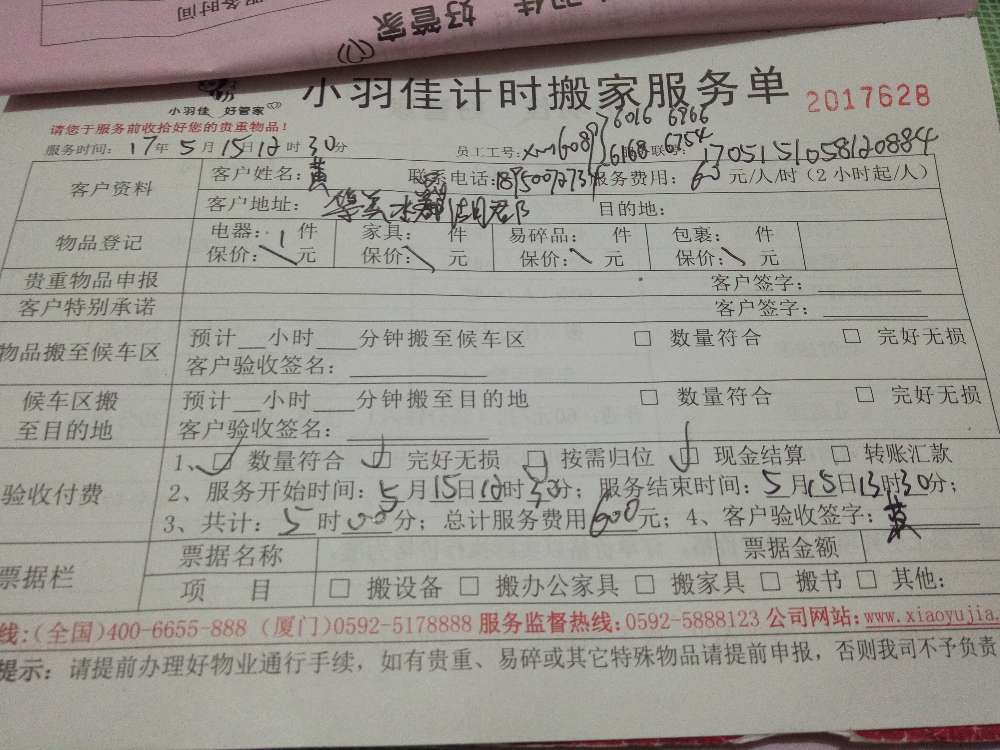 好管家
小羽佳 好管家
小羽佳计时搬家服务单
2017628
请您于服务前收拾好您的贵重物品!
6016 6866
服务时间: 17年5月15日12时30分 员工工号: xm6089 6168 6754 1705151058120884
客户资料 客户姓名: 黄 联系电话: 服务费用: 60元/人/时(2小时起/人)
客户地址: 目的地:
物品登记 电器: 1件 家具: 件 易碎品: 件 包裹: 件
保价: 元 保价: 元 保价: 元 保价: 元
贵重物品申报 客户签字:
客户特别承诺 客户签字:
物品搬至候车区 预计__小时___分钟搬至候车区 □ 数量符合 □ 完好无损
客户验收签名:
候车区搬至目的地 预计__小时___分钟搬至目的地 □ 数量符合 □ 完好无损
客户验收签名:
验收付费 1、☑ 数量符合 ☑ 完好无损 ☑ 按需归位 ☑ 现金结算 □ 转账汇款
2、服务开始时间: 5月15日12时30分; 服务结束时间: 5月15日13时30分;
3、共计: 5时00分; 总计服务费用600元; 4、客户验收签字: 黄
票据栏 票据名称 票据金额
项 目 □ 搬设备 □ 搬办公家具 □ 搬家具 □ 搬书 □ 其他:
线:(全国)400-6655-888 (厦门)0592-5178888 服务监督热线:0592-5888123 公司网站:www.xiaoyujia.
提示: 请提前办理好物业通行手续,如有贵重、易碎或其它特殊物品请提前申报,否则我司不予负责